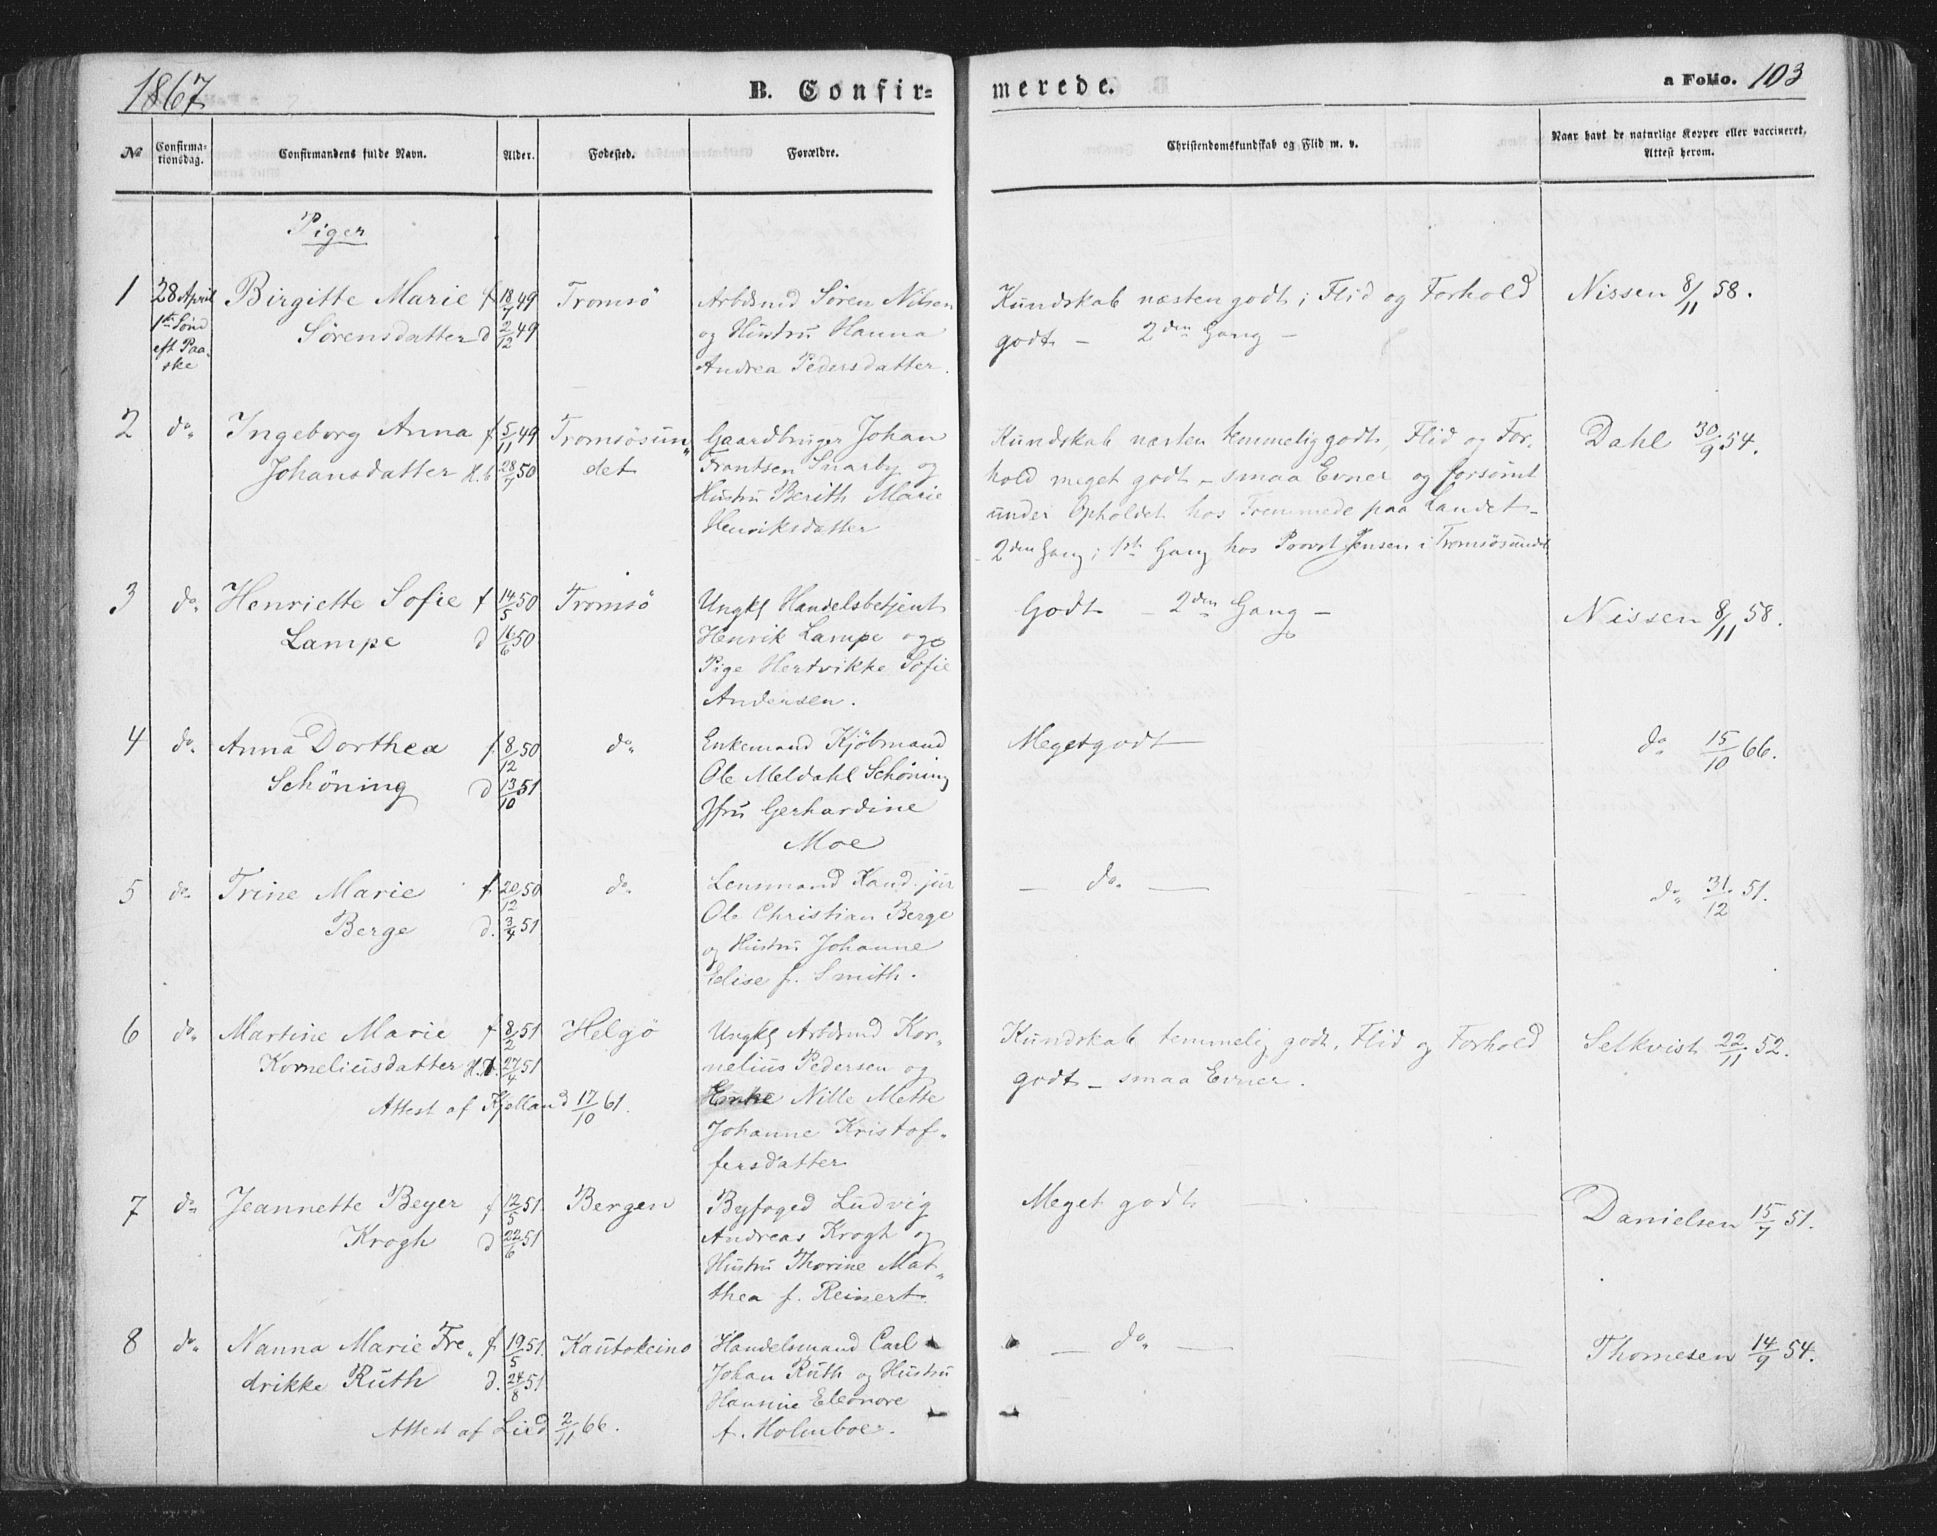 1867
B. Confir=
merede.
a Folio. 103
No
Confirma-
tionsdag.
Confirmandens fulde Navn.
Alder.
Fodested.
Forældre.
Christendomskundskab og Flid m. v.
Naar havt de naturlige Kopper eller vaccineret,
Attest herom.
Piger
1 28 April Birgitte Marie f 18/7 49 Tromsö Arbdsmd Sören Nilsen Kundskab næsten godt; Flid og Forhold Nissen 8/11 58.
1ste Sönd Sørensdatter d 2/12 49 og Hustru Hanna godt - 2den Gang -
eft Paa-
ske Andrea Pedersdatter.
2 do Ingeborg Anna f 5/11 49 Tromsösun„ Gaardbruger Johan Kundskab næsten temmelig godt, Flid og For- Dahl 30/9 54.
Johansdatter H.b 28/7 50 det Frantsen Snarby og hold meget godt - smaa Evner og forsömt
Hustru Berith Marie under Opholdet hos Fremmede paa Landet -
Henriksdatter 2den Gang; 1ste Gang hos Provst Jensen i Tromsösundet
3 do Henriette Sofie f 14/5 50 Tromsö Ungkl Handelsbetjent Godt - 2den Gang - Nissen 8/11 58.
Lampe d 16/6 50 Henrik Lampe og
Pige Hertvikke Sofie
Andersen.
4 do Anna Dorthea f. 8/12 50 do Enkemand Kjöbmand Meget godt - do 15/10 66.
Schöning d 13/10 51 Ole Meldahl Schöning
Jfru Gerhardine
Moe
5 do Trine Marie f. 20/12 50 do Lensmand Kand. jur - do - do 31/12 51.
Berge d. 3/4 51 Ole Christian Berge
og Hustru Johanne
Elise f. Smith.
6 do Martine Marie f 8/2 51 Helgö Ungkl Arbdsmd Kor- Kundskab temmelig godt, Flid og Forhold Selkvist 22/11 52.
Korneliusdatter H.d. 27/4 51 nelius Pedersen og godt - smaa Evner.
Attest af Kjelland 17/10 61. Enke Nille Mette
Johanne Kristof-
fersdatter
7 do Jeannette Beyer f 12/5 51 Bergen Byfoged Ludvig Meget godt Danielsen 15/7 51.
Krogh d 22/6 51 Andreas Krogh og
Hustru Thorine Mat„
thea f. Reinert.
8 do Nanna Marie Fre„ f. 19/5 51. Kautokeino Handelsmand Carl - do - Thomesen 14/9 54.
drikke Ruth d. 24/8 51 Johan Ruth og Hustru
Hannine Eleonore
Attest af Lied 2/11 66. f. Holmboe.